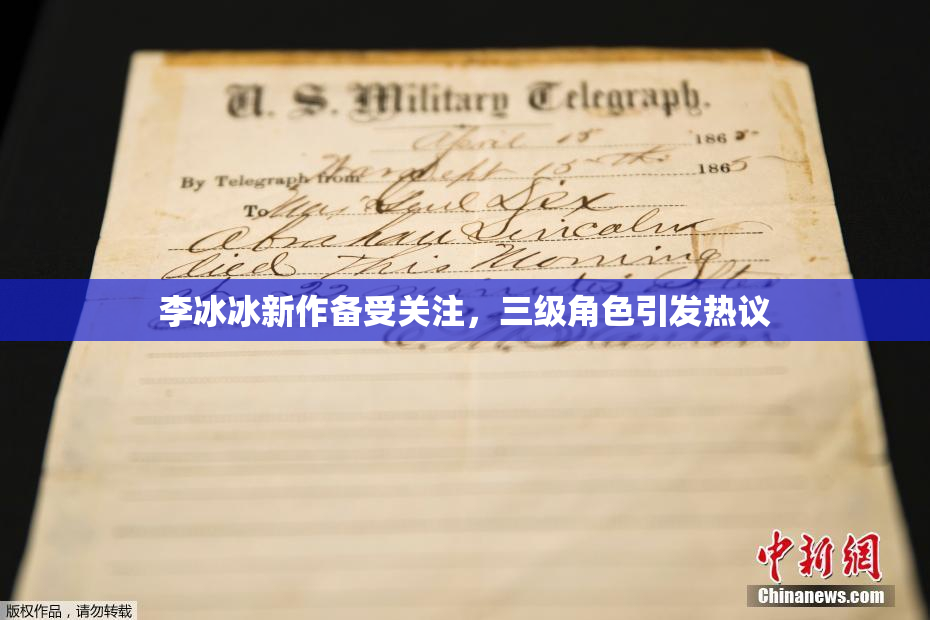 U. S. Military Telegraph.
April 15 1865
By Telegraph from War Dept 15th 1865
To Maj Genl Dix
Abraham Lincoln
died This Morning
at 22 minutes after
李冰冰新作备受关注，三级角色引发热议
E. M. Stanton
中新網
Chinanews.com
版权作品，请勿转载